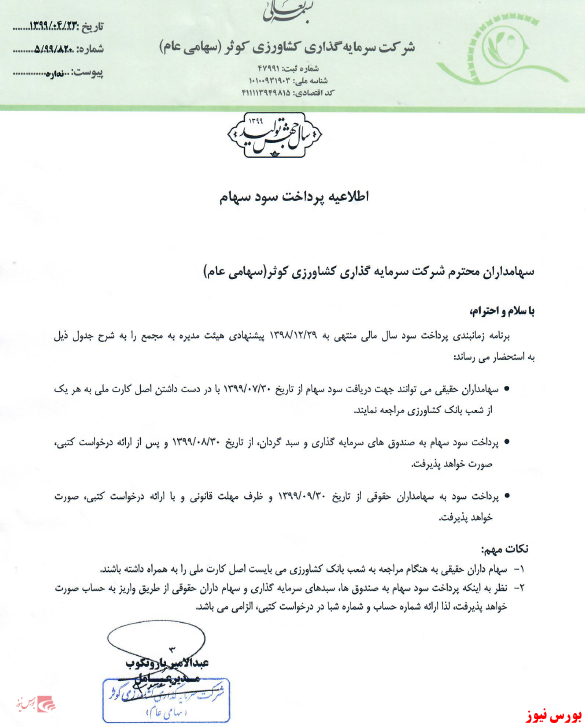 بسمه تعالی
تاریخ :۱۳۹۹/۰۴/۲۳
شرکت سرمایه‌گذاری کشاورزی کوثر (سهامی عام)
شماره: ۵/۹۹/۸۲۰
شماره ثبت: ۴۷۹۹۱
پیوست: ندارد
شناسه ملی: ۱۰۱۰۰۹۳۱۹۰۳
کد اقتصادی: ۴۱۱۱۱۳۹۴۹۸۱۵
۱۳۹۹
سال جهش تولید
اطلاعیه پرداخت سود سهام
سهامداران محترم شرکت سرمایه گذاری کشاورزی کوثر(سهامی عام)
با سلام و احترام،
برنامه زمانبندی پرداخت سود سال مالی منتهی به ۱۳۹۸/۱۲/۲۹ پیشنهادی هیئت مدیره به مجمع را به شرح جدول ذیل
به استحضار می رساند:
• سهامداران حقیقی می توانند جهت دریافت سود سهام از تاریخ ۱۳۹۹/۰۷/۳۰ با در دست داشتن اصل کارت ملی به هر یک
از شعب بانک کشاورزی مراجعه نمایند.
• پرداخت سود سهام به صندوق های سرمایه گذاری و سبد گردان، از تاریخ ۱۳۹۹/۰۸/۳۰ و پس از ارائه درخواست کتبی،
صورت خواهد پذیرفت.
• پرداخت سود به سهامداران حقوقی از تاریخ ۱۳۹۹/۰۹/۳۰ و ظرف مهلت قانونی و با ارائه درخواست کتبی، صورت
خواهد پذیرفت.
نکات مهم:
۱- سهام داران حقیقی به هنگام مراجعه به شعب بانک کشاورزی می بایست اصل کارت ملی را به همراه داشته باشند.
۲- نظر به اینکه پرداخت سود سهام به صندوق ها، سبدهای سرمایه گذاری و سهام داران حقوقی از طریق واریز به حساب صورت
خواهد پذیرفت، لذا ارائه شماره حساب و شماره شبا در درخواست کتبی، الزامی می باشد.
عبدالامیر یارونکوب
مدیرعامل
شرکت سرمایه گذاری کشاورزی کوثر
(سهامی عام)
بورس نیوز
بورس نیوز